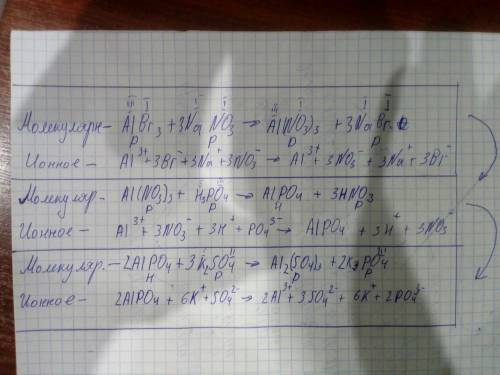 III I I I III I I I
Молекуларн- AlBr₃ + 3NaNO₃ → Al(NO₃)₃ + 3NaBr
Р Р Р Р
Ионное - Al³⁺ + 3Br⁻ + 3Na⁺ + 3NO₃⁻ → Al³⁺ + 3NO₃⁻ + 3Na⁺ + 3Br⁻
Молекулар. - Al(NO₃)₃ + H₃PO₄ → AlPO₄ + 3HNO₃
Р Р Н Р
Ионное - Al³⁺ + 3NO₃⁻ + 3H⁺ + PO₄³⁻ → AlPO₄ + 3H⁺ + 3NO₃⁻
Молекулар. - 2AlPO₄ + 3K₂SO₄ → Al₂(SO₄)₃ + 2K₃PO₄
Н Р Р Р
Ионное - 2AlPO₄ + 6K⁺ + SO₄²⁻ → 2Al³⁺ + 3SO₄²⁻ + 6K⁺ + 2PO₄³⁻